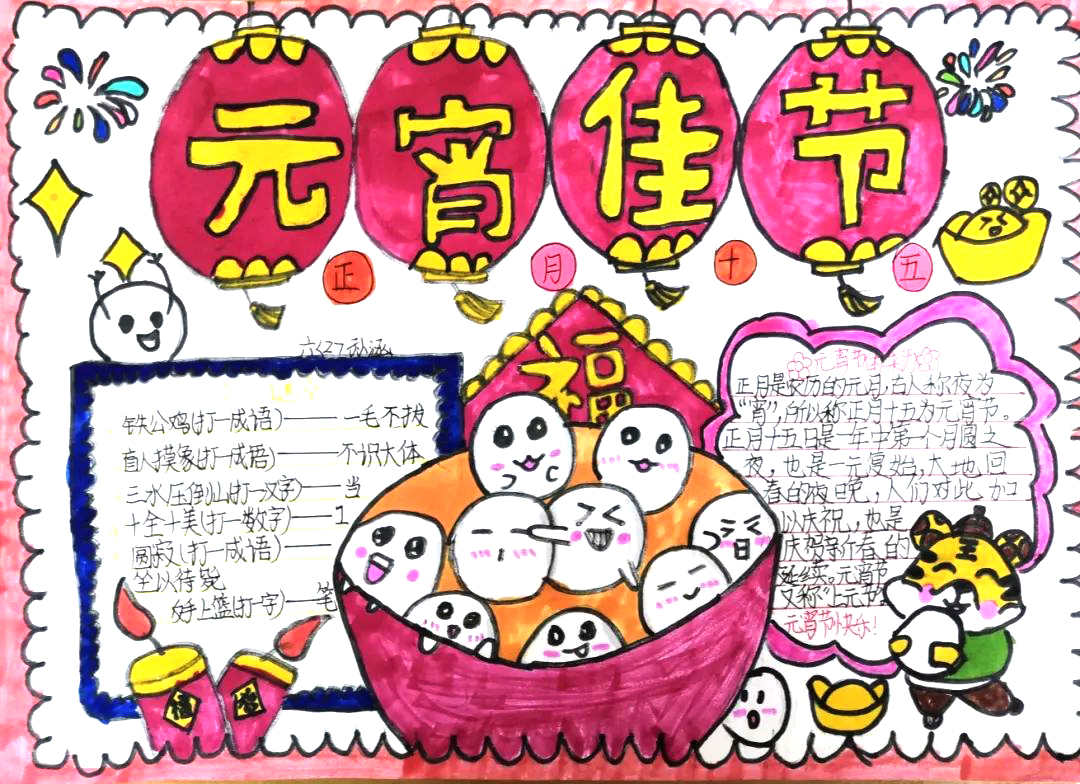 元宵佳节
正月十五
福
铁公鸡(打一成语)——一毛不拔
盲人摸象(打一成语)——不识大体
三水压倒山(打一汉字)——当
十全十美(打一数字)——1
圆寂(打一成语)——
坐以待毙
好手上篮(打一字)——笔
福
元宵节
正月是农历的元月,古人称夜为
“宵”,所以称正月十五为元宵节。
正月十五日是一年中第一个月圆之
夜,也是一元复始,大地回
春的夜晚,人们对此加
以庆祝,也是
庆贺新春的
延续。元宵节
又称“上元节
元宵节快乐!